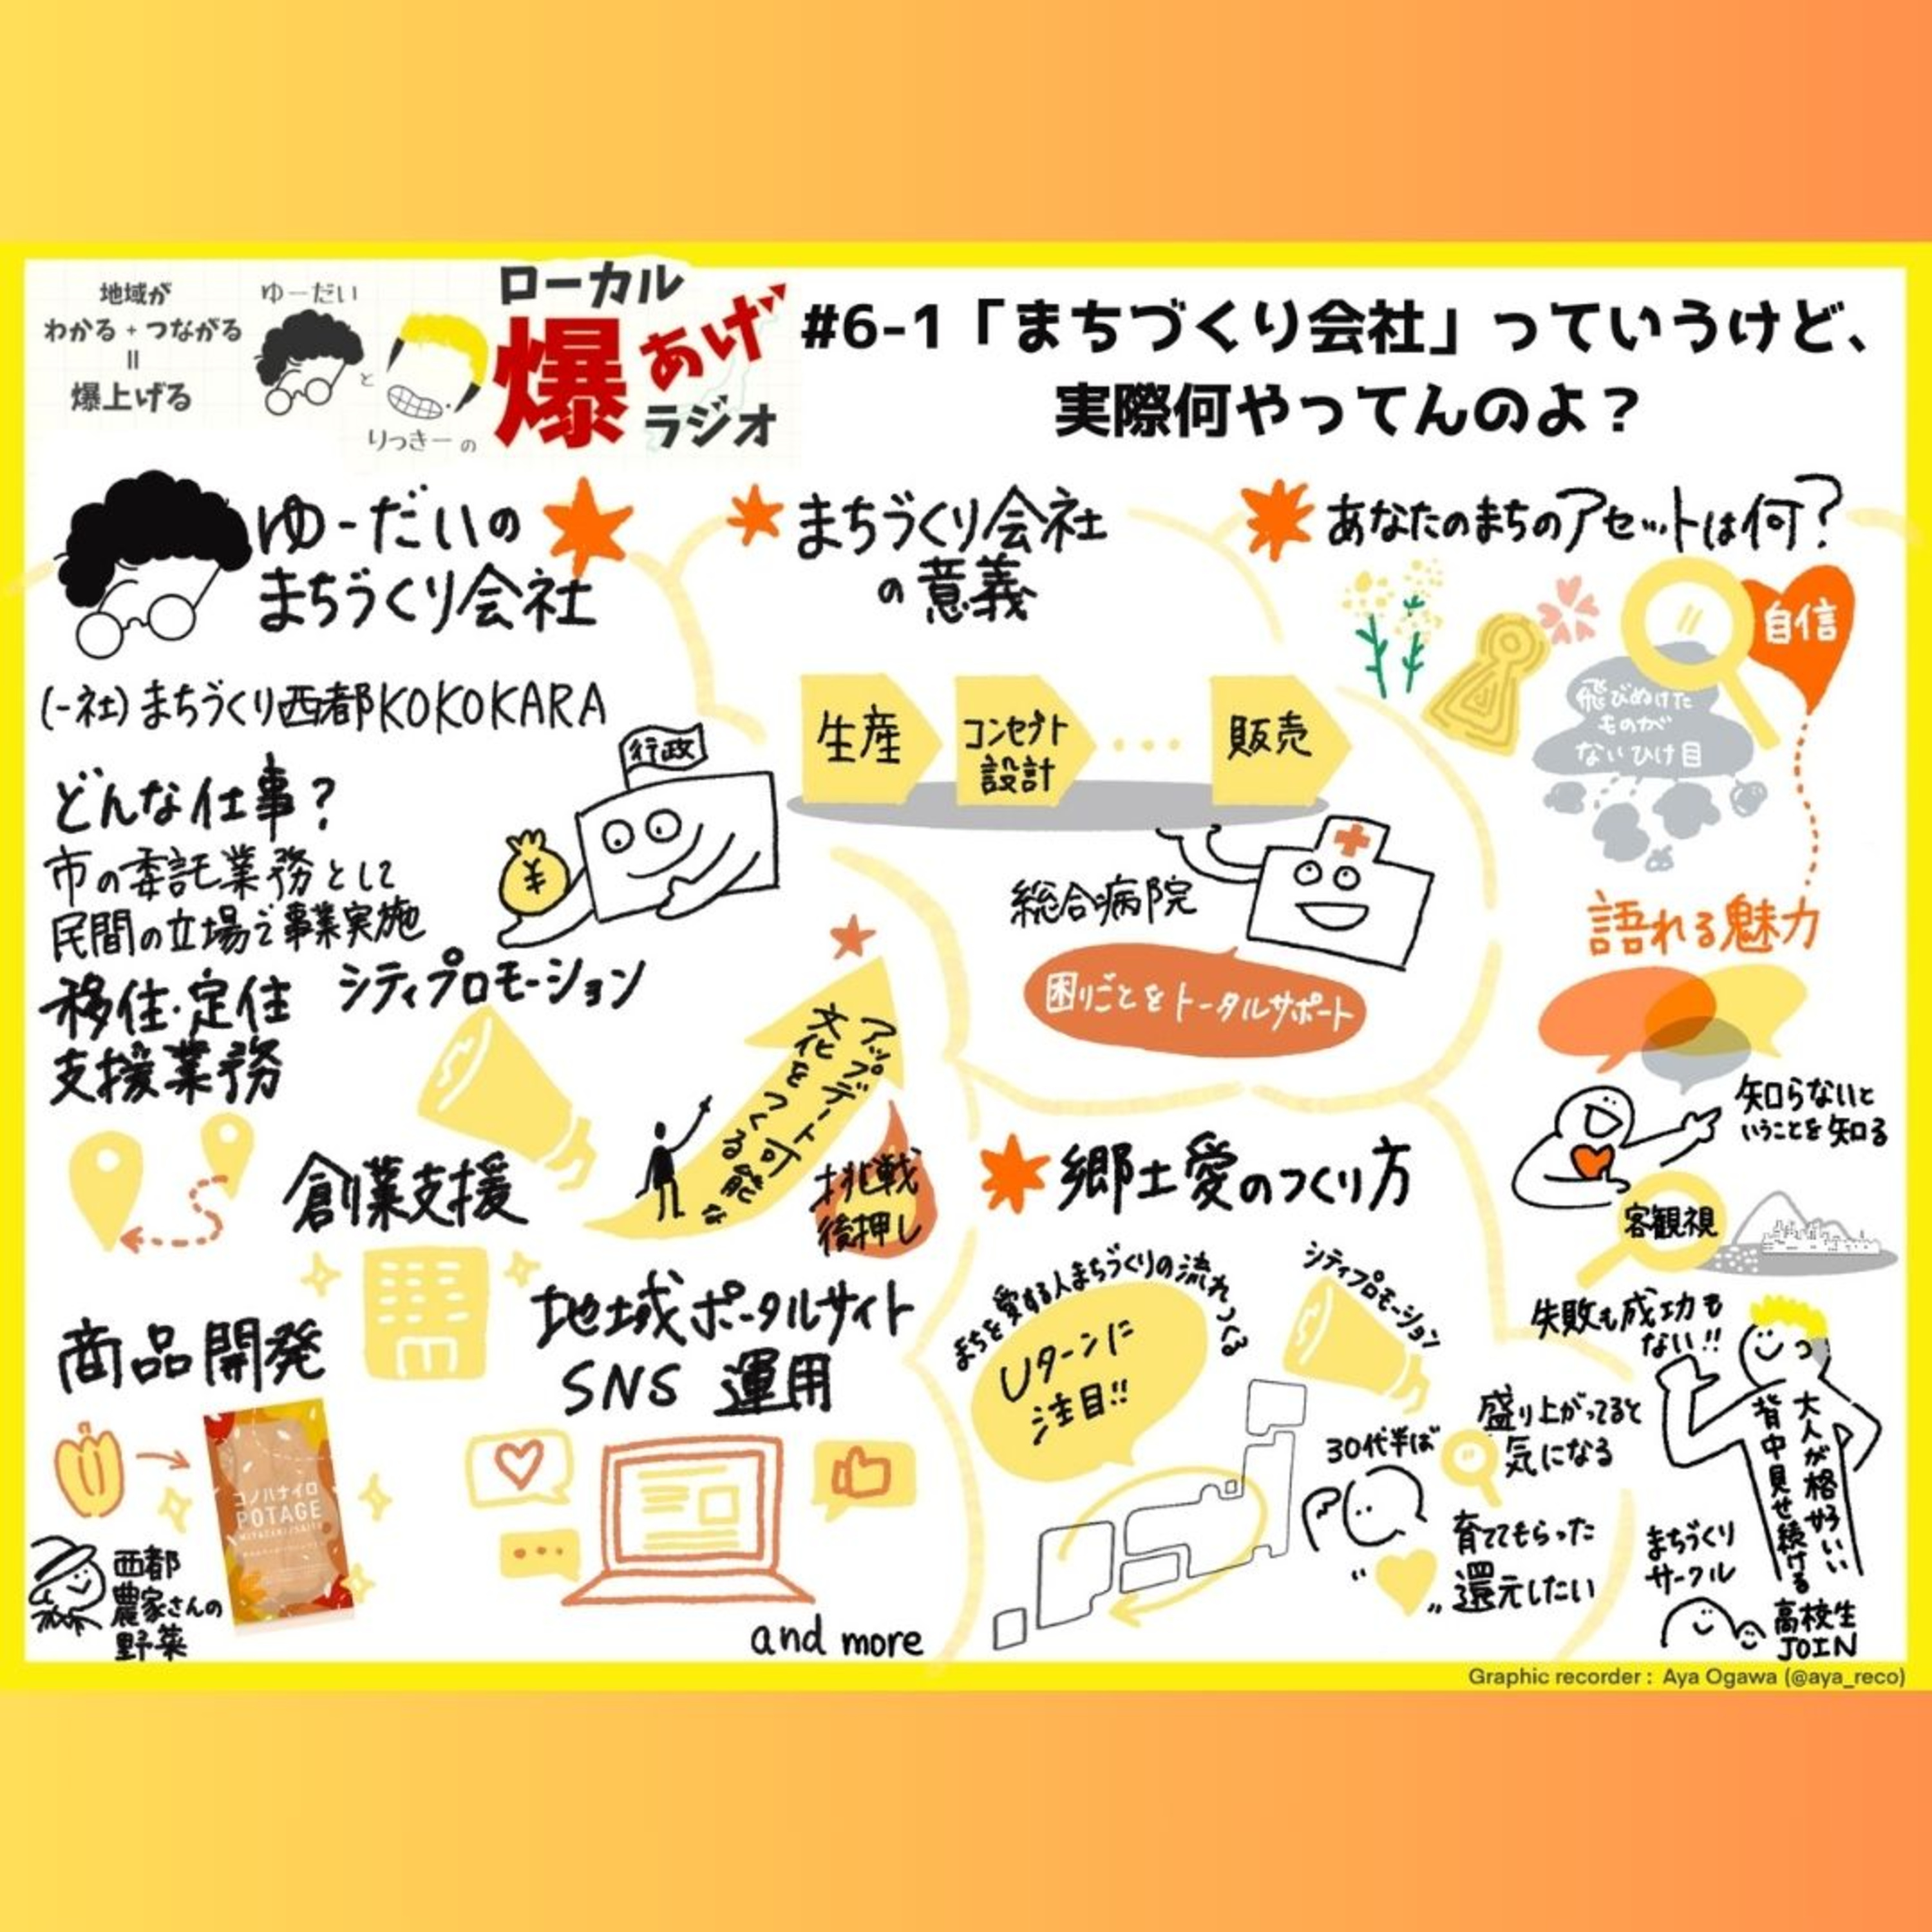 地域が
わかる + つながる
=
爆上げる
ゆーだい
と
りっきーの
ローカル
爆あげ
ラジオ
#6-1「まちづくり会社」っていうけど、
実際何やってんのよ？
ゆーだいの
まちづくり会社
(一社)まちづくり西都KOKOKARA
どんな仕事？
市の委託業務として
民間の立場で事業実施
行政
¥
移住・定住
支援業務
シティプロモーション
創業支援
アップデート可能な
文化をつくる
挑戦
後押し
商品開発
コノハナイロ
POTAGE
西都
農家さんの
野菜
地域ポータルサイト
SNS 運用
and more
まちづくり会社
の意義
生産
コンセプト
設計
・・・
販売
総合病院
困りごとをトータルサポート
郷土愛のつくり方
まちを愛する人まちづくりの流れつくる
Uターンに
注目!!
シティプロモーション
30代半ば
盛り上がってると
気になる
育ててもらった
還元したい
あなたのまちのアセットは何？
自信
飛びぬけた
ものが
ないひけ目
語れる魅力
知らないと
いうことを知る
客観視
失敗も成功も
ない!!
大人が格好いい
背中見せ続ける
まちづくり
サークル
高校生
JOIN
Graphic recorder : Aya Ogawa (@aya_reco)